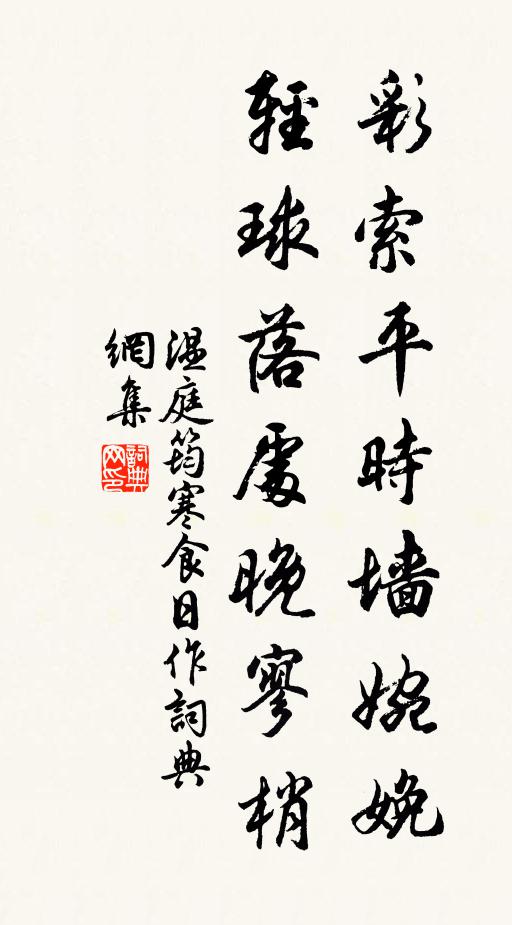 彩索平時墙婉娩
輕球落處晚寥梢
温庭筠寒食日作詞典
網集
詞典
网印